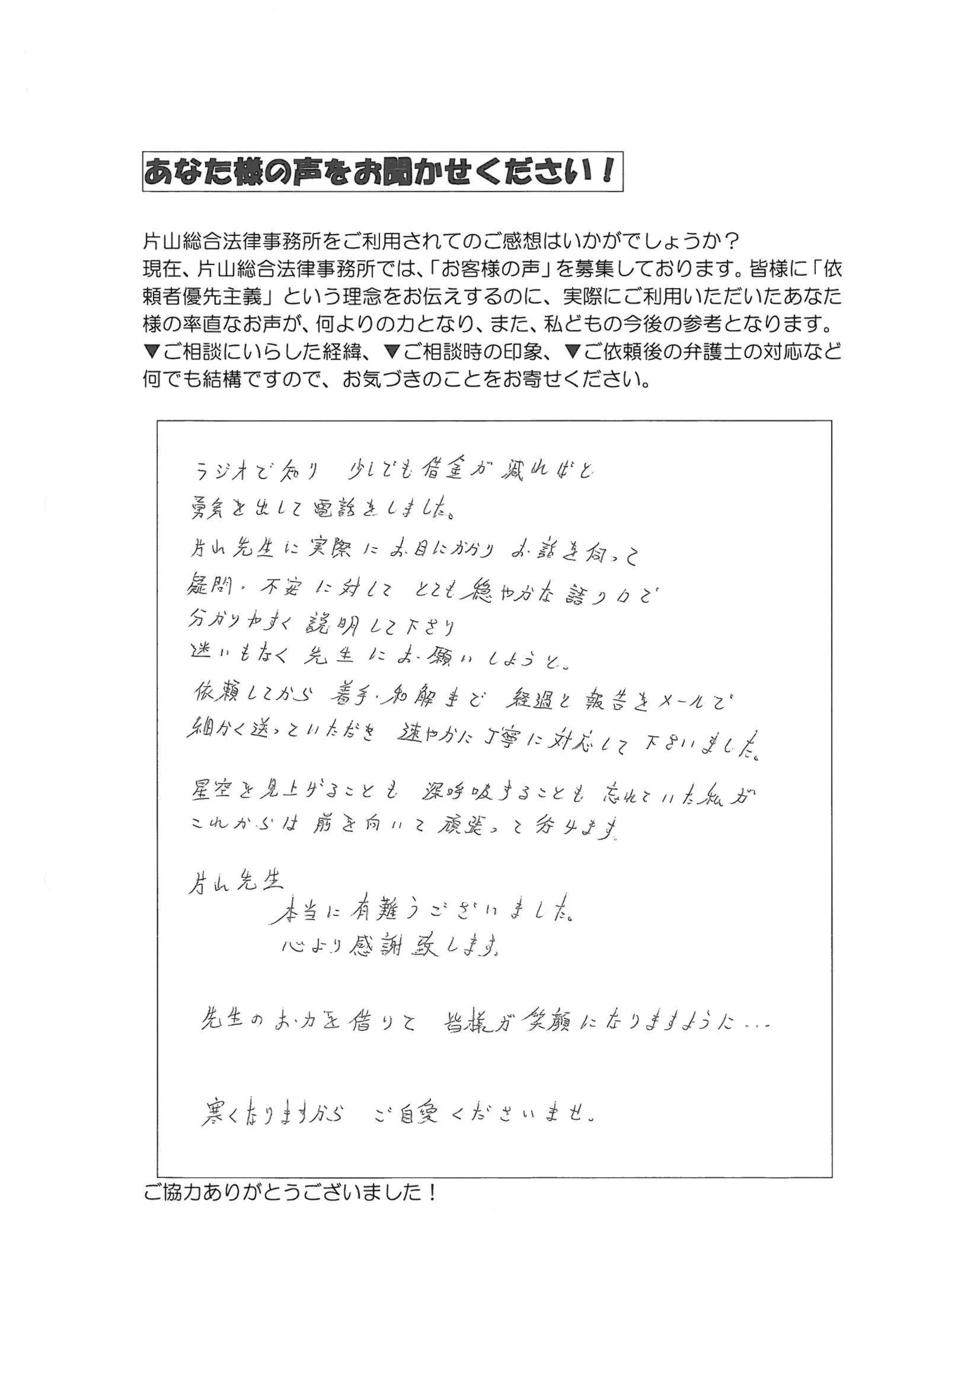 あなた様の声をお聞かせください！
片山総合法律事務所をご利用されてのご感想はいかがでしょうか？
現在、片山総合法律事務所では、「お客様の声」を募集しております。皆様に「依
頼者優先主義」という理念をお伝えするのに、実際にご利用いただいたあなた
様の率直なお声が、何よりの力となり、また、私どもの今後の参考となります。
▼ご相談にいらした経緯、▼ご相談時の印象、▼ご依頼後の弁護士の対応など
何でも結構ですので、お気づきのことをお寄せください。
ラジオで知り 少しでも借金が減ればと
勇気を出して電話をしました。
片山先生に実際にお目にかかり お話を伺って
疑問・不安に対して とても穏やかな語り口で
分かりやすく説明して下さり
迷いもなく 先生にお願いしようと。
依頼してから 着手・和解まで 経過と報告をメールで
細かく送っていただき 速やかに丁寧に対応して下さいました。
星空を見上げることも 深呼吸することも 忘れていた私が
これからは前を向いて頑張って歩けます。
片山先生
本当に有難うございました。
心より感謝致します。
先生のお力を借りて 皆様が笑顔になりますように...
寒くなりますから ご自愛くださいませ。
ご協力ありがとうございました！